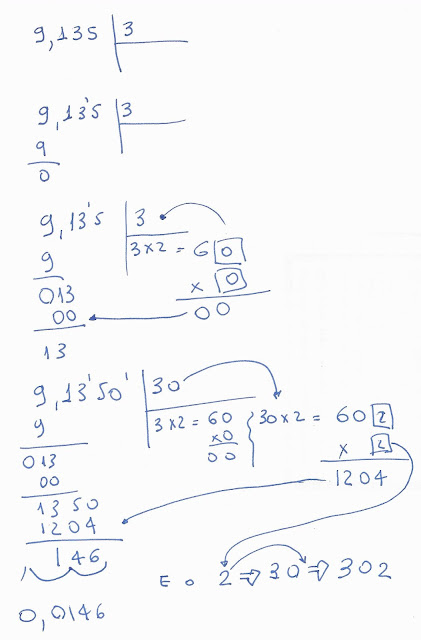 9,135 3
9,13'5 3
9
0
9,13'5 3
9 3x2 = 6 0
013 x 0
00 00
13
9,13'50' 30
9 3x2 = 60 30x2 = 60 2
013 x0 x 2
00 00 1204
1350
1204
146 E o 2 ⇒ 30 ⇒ 302
0,0146